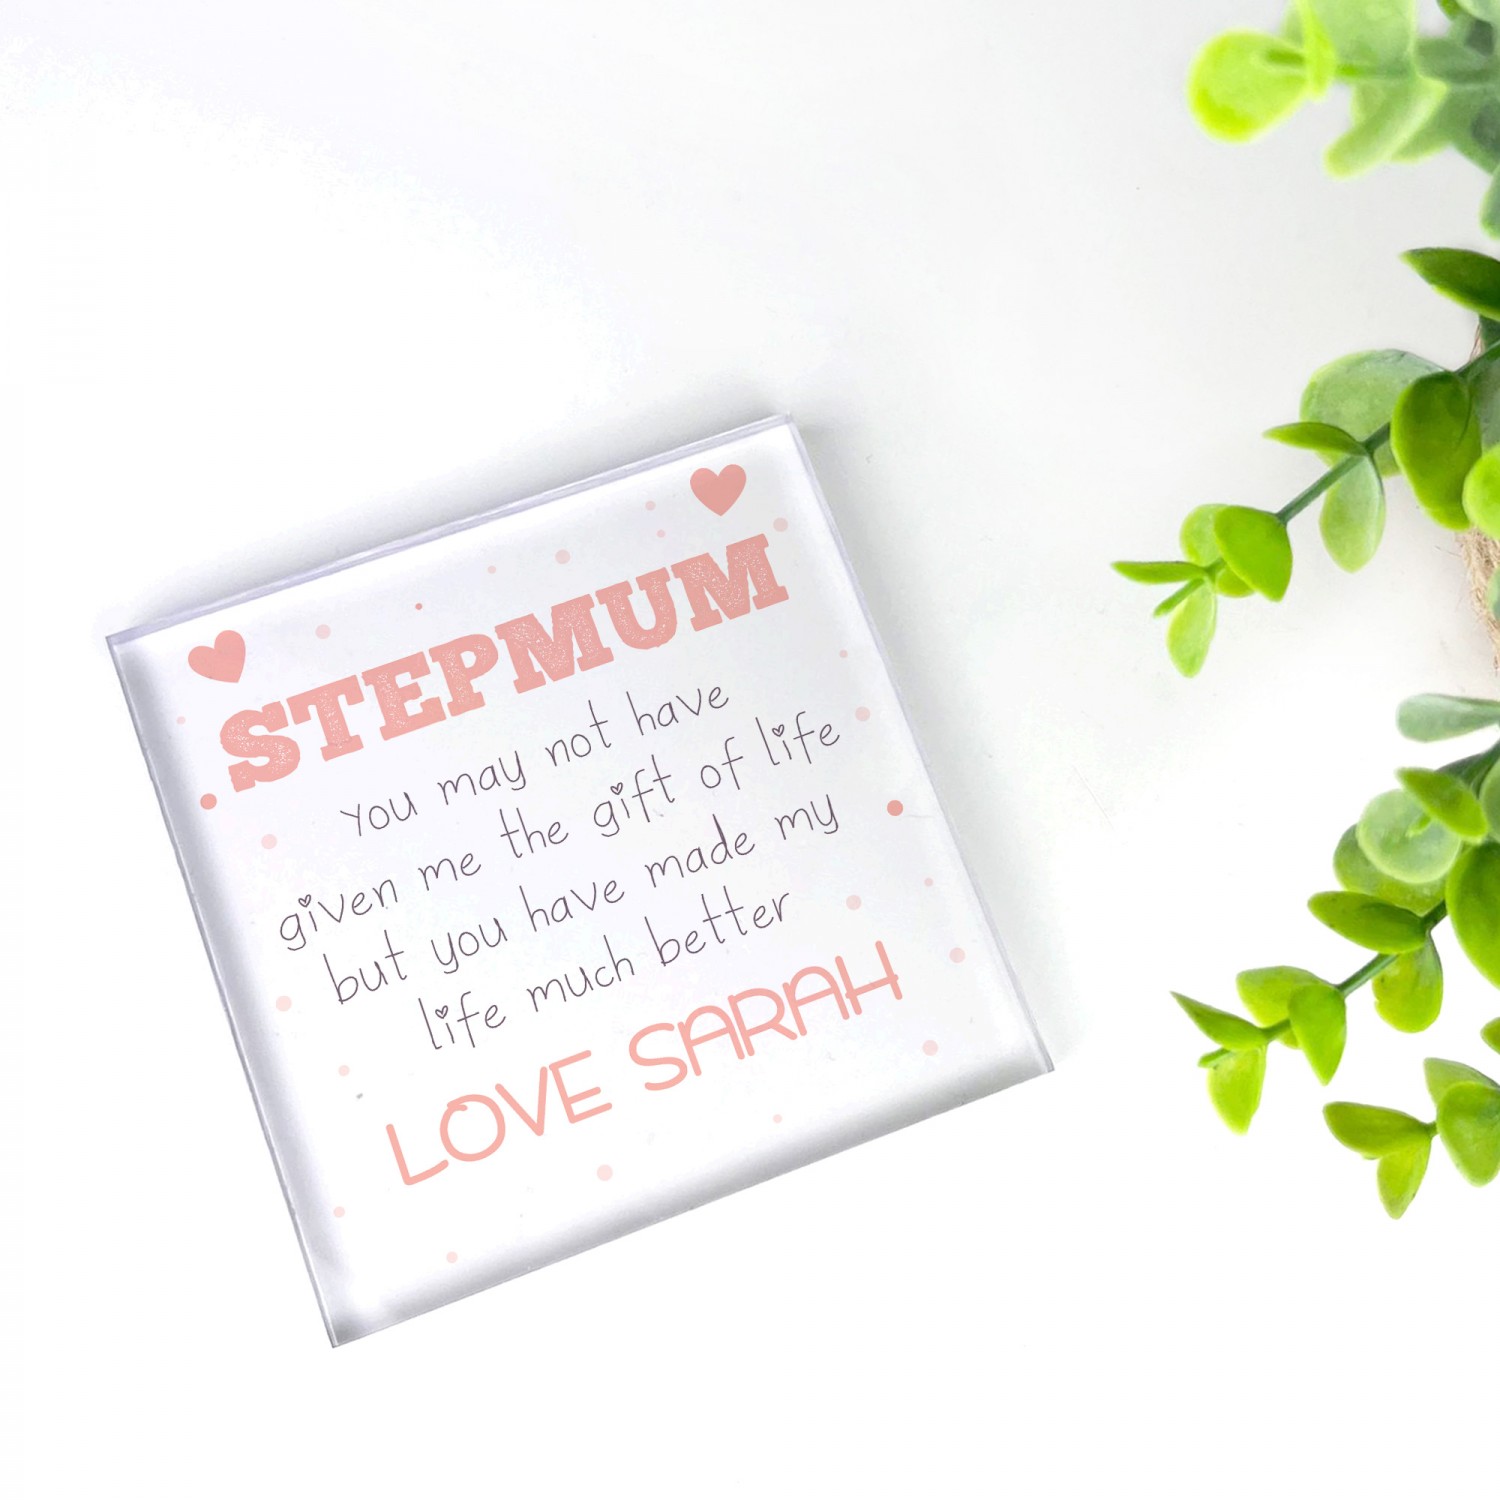 STEPMUM
You may not have
given me the gift of life
but you have made my
life much better
LOVE SARAH